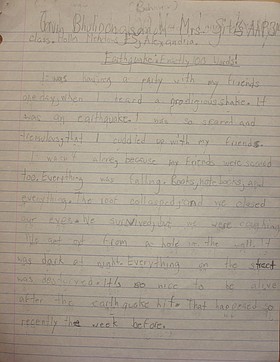 (Survivor)
Mrs.
Class, Bella Alexandria
Earthquake! Exactly 100 words!
I was having a party with my friends
one day, when I heard a prodigious shake. It
was an earthquake. I was so scared and
tremulous that I cuddled up with my friends.
I wasn't alone, because my friends were scared
too. Everything was falling. Books, and
everything. The roof collapsed, and we closed
our eyes. We survived, but we were
We got out from a hole in the wall. It
was dark at night. Everything on the street
was destroyed. It's so nice to be alive
after the earthquake hit. That happened so
recently the week before.